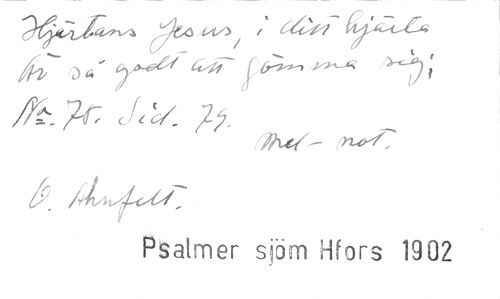 Hjärtans Jesus, i ditt hjärta
Är så godt att gömma sig,
No. 78. Sid. 79.
Mel - not.
O. Ahnfelt.
Psalmer sjöm Hfors 1902